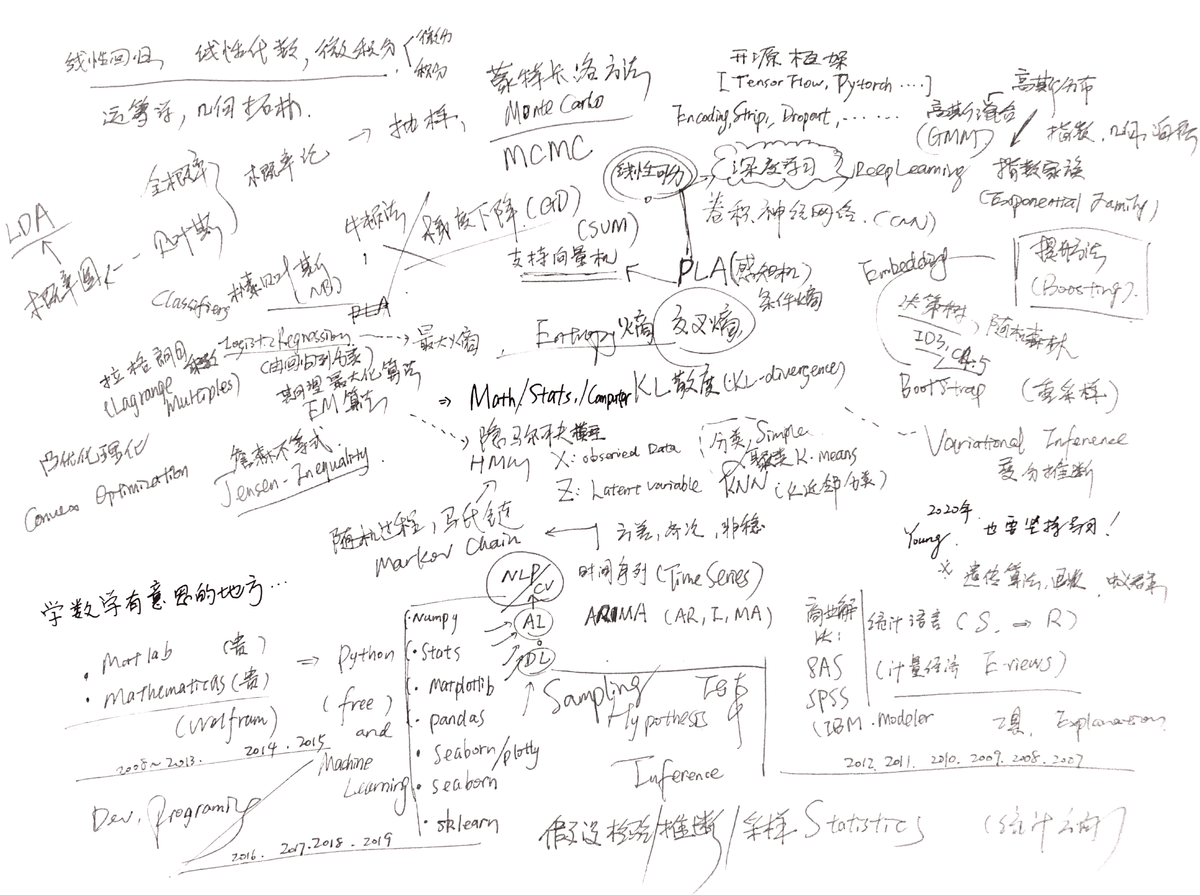 线性回归, 线性代数, 微积分 微分
积分
运筹学, 几何拓扑.
蒙特卡洛方法
Monte Carlo
MCMC
开源框架
[TensorFlow, Pytorch ....]
Encoding, Strip, Dropout, ......
高斯分布
高斯混合
(GMM)
指数, 几何, 泊松
指数家族
(Exponential Family)
全概率
概率论
抽样,
LDA
贝叶斯
概率图
牛顿法
梯度下降 (GD)
(SVM)
支持向量机
线性可分
深度学习 Deep Learning
卷积神经网络. (CNN)
PLA (感知机)
条件熵
Embedding
提升方法
(Boosting).
Classifiers 朴素贝叶斯
(NB)
PLA
Logistic Regression
(由回归到分类)
最大熵
Entropy 熵 交叉熵
决策树, 随机森林
ID3, C4.5
BootStrap (重采样)
拉格朗日
(Lagrange
Multiples)
期望最大化算法
EM算法
⇒ Math/Stats./Computer KL散度 (KL-divergence)
隐马尔可夫模型
HMM
X: observed Data
Z: Latent variable
分类, Simple
聚类 K-means
KNN (K近邻分类)
Variational Inference
变分推断
凸优化理论
Convex Optimization
詹森不等式
Jensen-Inequality
随机过程, 马氏链
Markov Chain
方差, 齐次, 非稳
时间序列 (Time Series)
ARIMA (AR, I, MA)
2020年
Young 也要坚持学习!
※ 遗传算法, 退火, 蚁群
学数学有意思的地方...
• Matlab (贵)
• Mathematicas (贵)
(Wolfram)
2008~2013. 2014. 2015
⇒ Python
(free)
and
Machine
Learning
NLP/CV
AI
DL
• Numpy
• Stats
• Matplotlib
• pandas
• Seaborn/plotly
• seaborn
• sklearn
Dev. Programing
2016. 2017. 2018. 2019
Sampling
Hypothesis
Test
Inference
商业解
决:
SAS
SPSS
(IBM. Modeler
统计语言 (S. → R)
(计量经济 E-views)
工具, Explanation
2012. 2011. 2010. 2009. 2008. 2007
假设检验/推断/采样 Statistics